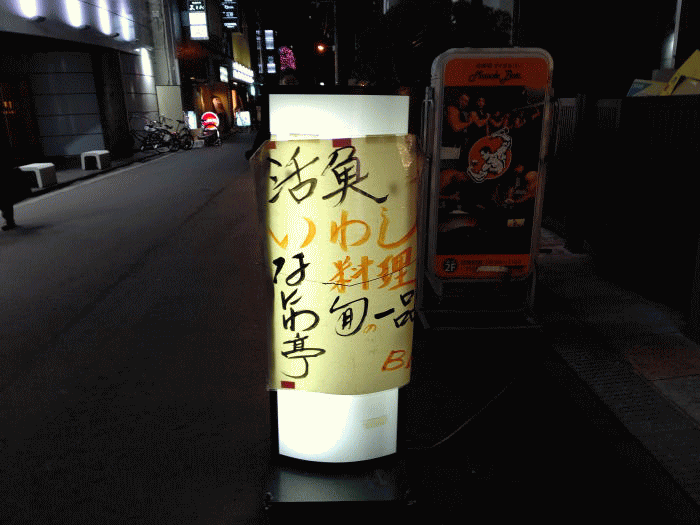 活魚
いわし
料理
旬の一品
なにわ亭
Muscle Bar
2F